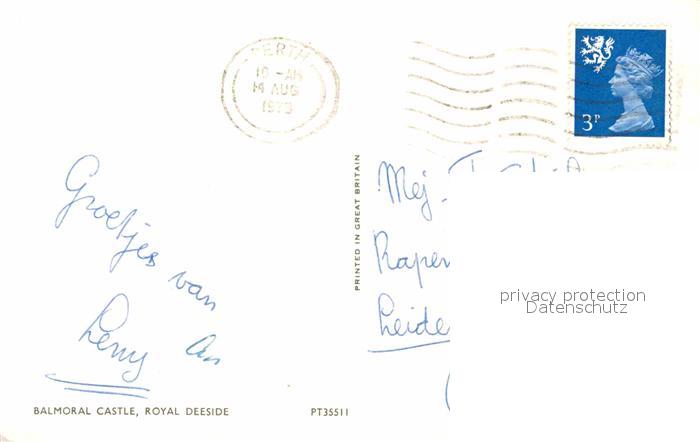 PERTH
10 - AM
14 AUG
1973
3P
Groetjes van
Leny
PRINTED IN GREAT BRITAIN
Mej.
privacy protection
Datenschutz
BALMORAL CASTLE, ROYAL DEESIDE
PT35511